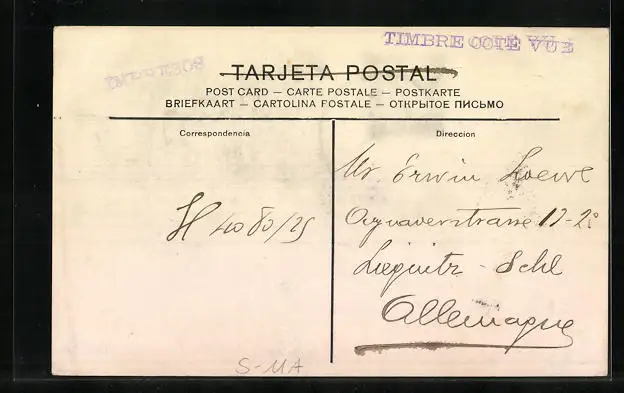 TIMBRE COTÉ VUE
TARJETA POSTAL
POST CARD – CARTE POSTALE – POSTKARTE
BRIEFKAART – CARTOLINA POSTALE – ОТКРЫТОЕ ПИСЬМО
Correspondencia
Direccion
Mr. Erwin Loewe
H 4080/25
11-2º
Liegnitz - Schl
Allemagne
S-MA